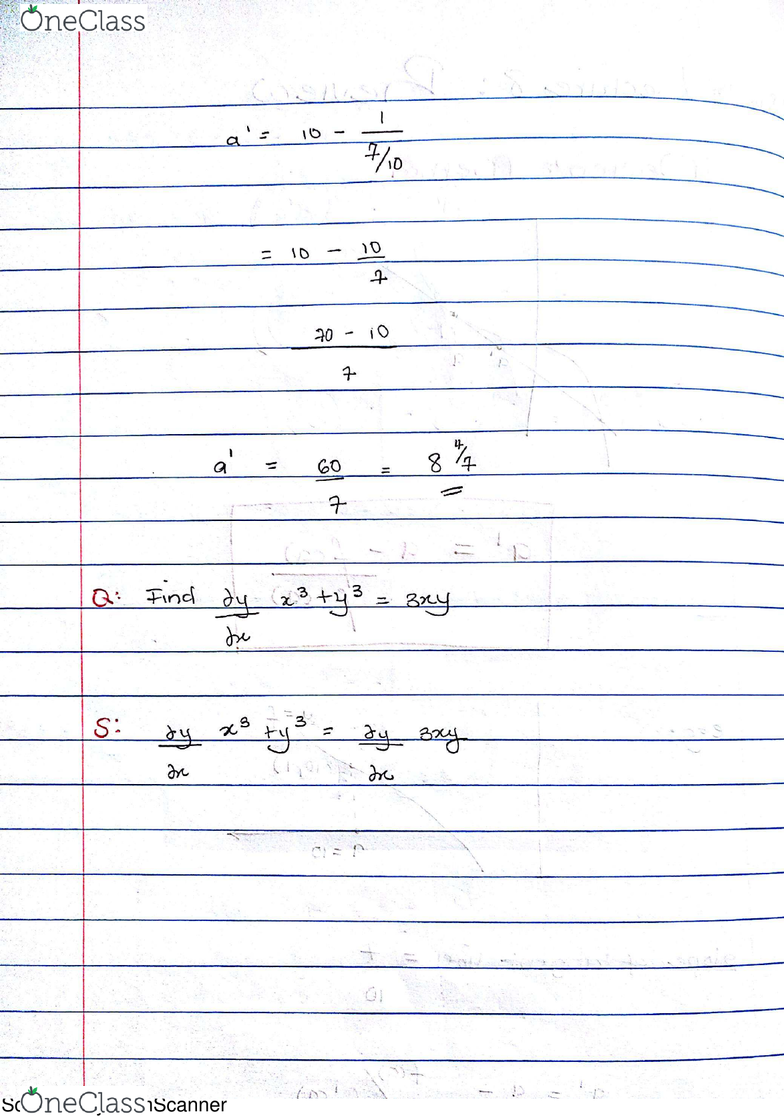 OneClass
a' = 10 - 1
7/10
= 10 - 10
7
70 - 10
7
a' = 60 = 8 4/7
7
Q: Find ∂y x³ + y³ = 3xy
∂x
S: ∂y x³ + y³ = ∂y 3xy
∂x ∂x
OneClass
Scanner